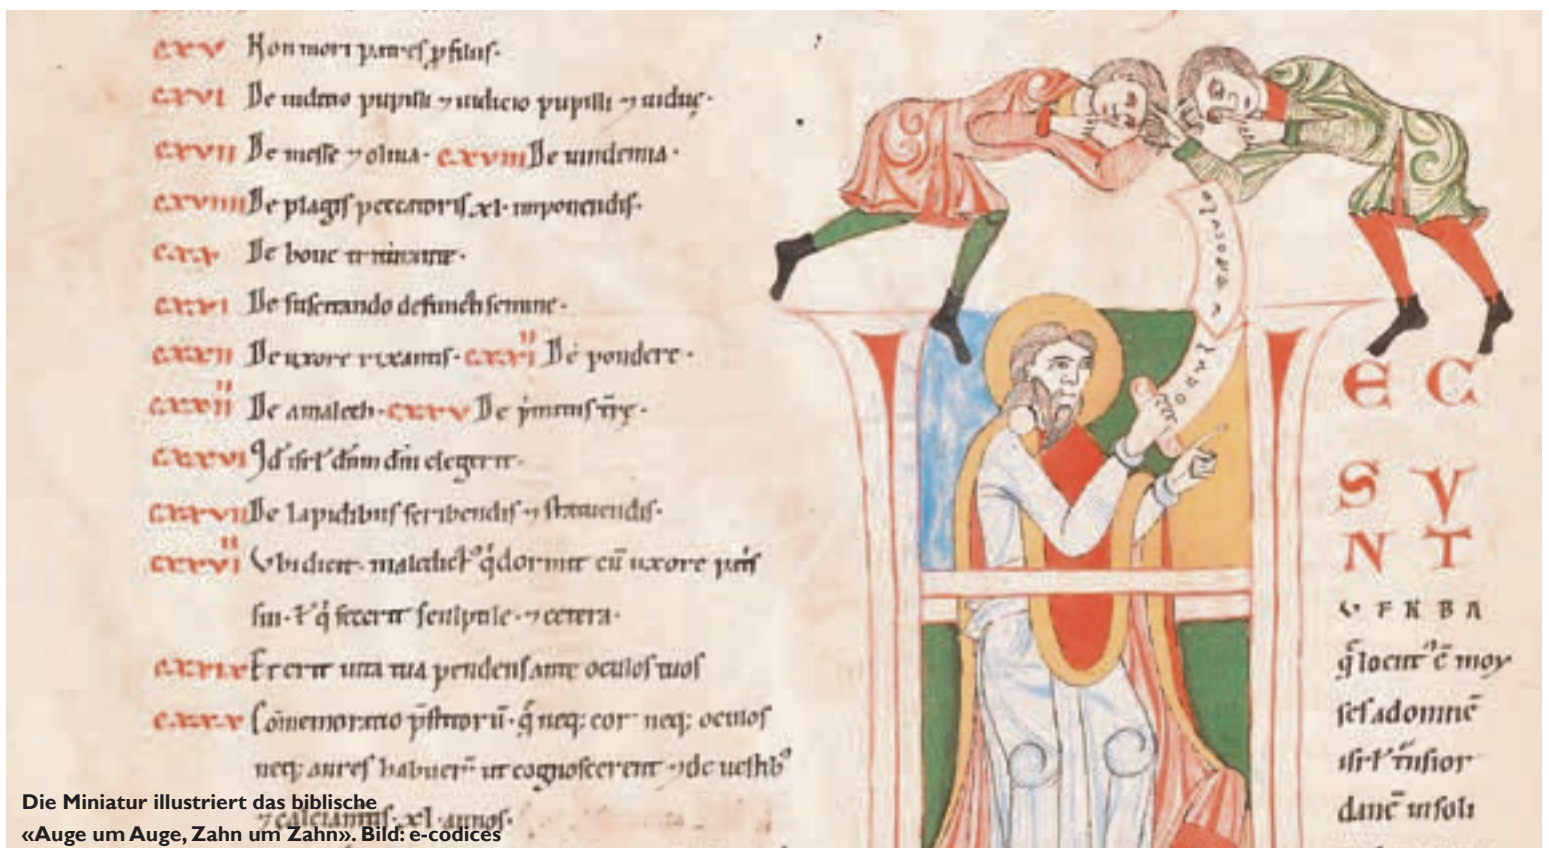 cxv Non mori patres p filiis·
cxvi De iudicio pupilli ⁊ uiduę·
cxvii De messe ⁊ oliua· cxviii De uindemia·
cxviiii De plagis peccatoris xl· imponendis·
cxx De boue triturante·
cxxi De suscitando defuncti semine·
cxxii De uxore rixantis· cxxiii De pondere·
cxxiiii De amalech· cxxv De pimitiis tr̄ę·
cxxvi Qd isrl dn̄m dm̄ elegerit·
cxxvii De lapidibus scribendis ⁊ statuendis·
cxxviii Vbi dicit· maledict' q dormit cū uxore patris
sui· ł q fecerit sculptile· ⁊ cetera·
cxxix Et erit uita tua pendens ante oculos tuos
cxxx Com̄emoratio p̄stitorū· q neq; cor neq; oculos
neq; aures habuer̄ ut cognoscerent ⁊ de uestib'
⁊ calciamtis· xl· annos·
E C
S V
N T
V E R B A
q̄ locut' ē moy
ses ad omnē
isrl tnsior
danē in soli
Die Miniatur illustriert das biblische
«Auge um Auge, Zahn um Zahn». Bild: e-codices